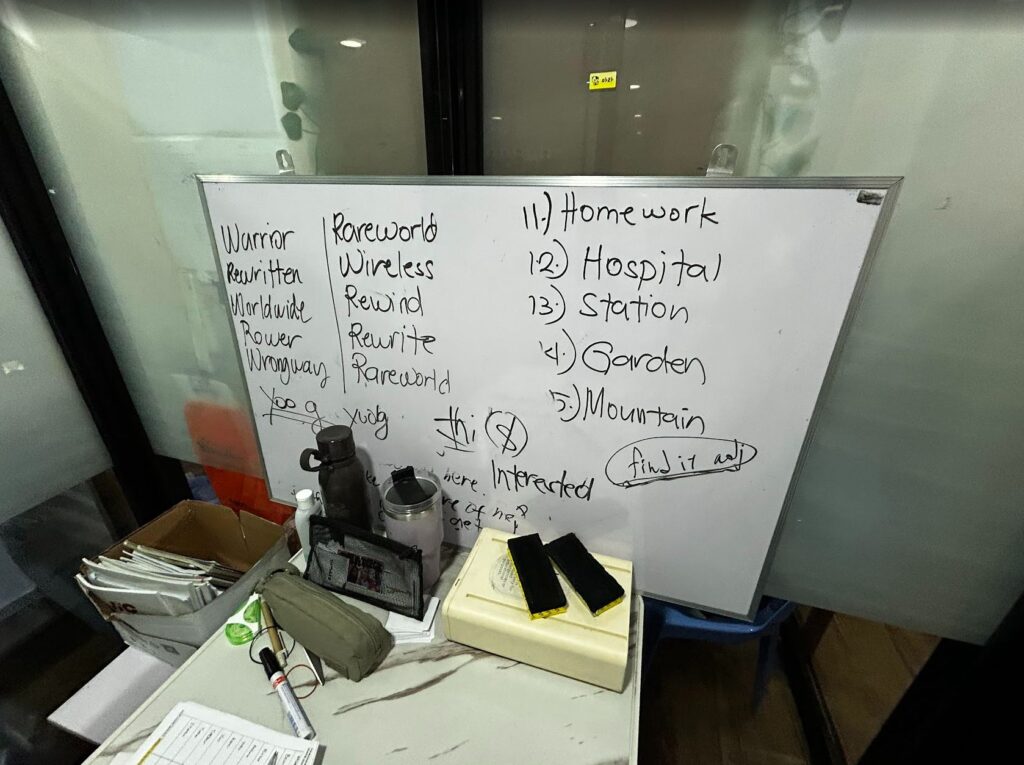 Warrior
Rewritten
Worldwide
Rower
Wrongway
Rareworld
Wireless
Rewind
Rewrite
Rareworld
11.) Homework
12.) Hospital
13.) Station
4.) Garden
5.) Mountain
thi
find it
here. Interested